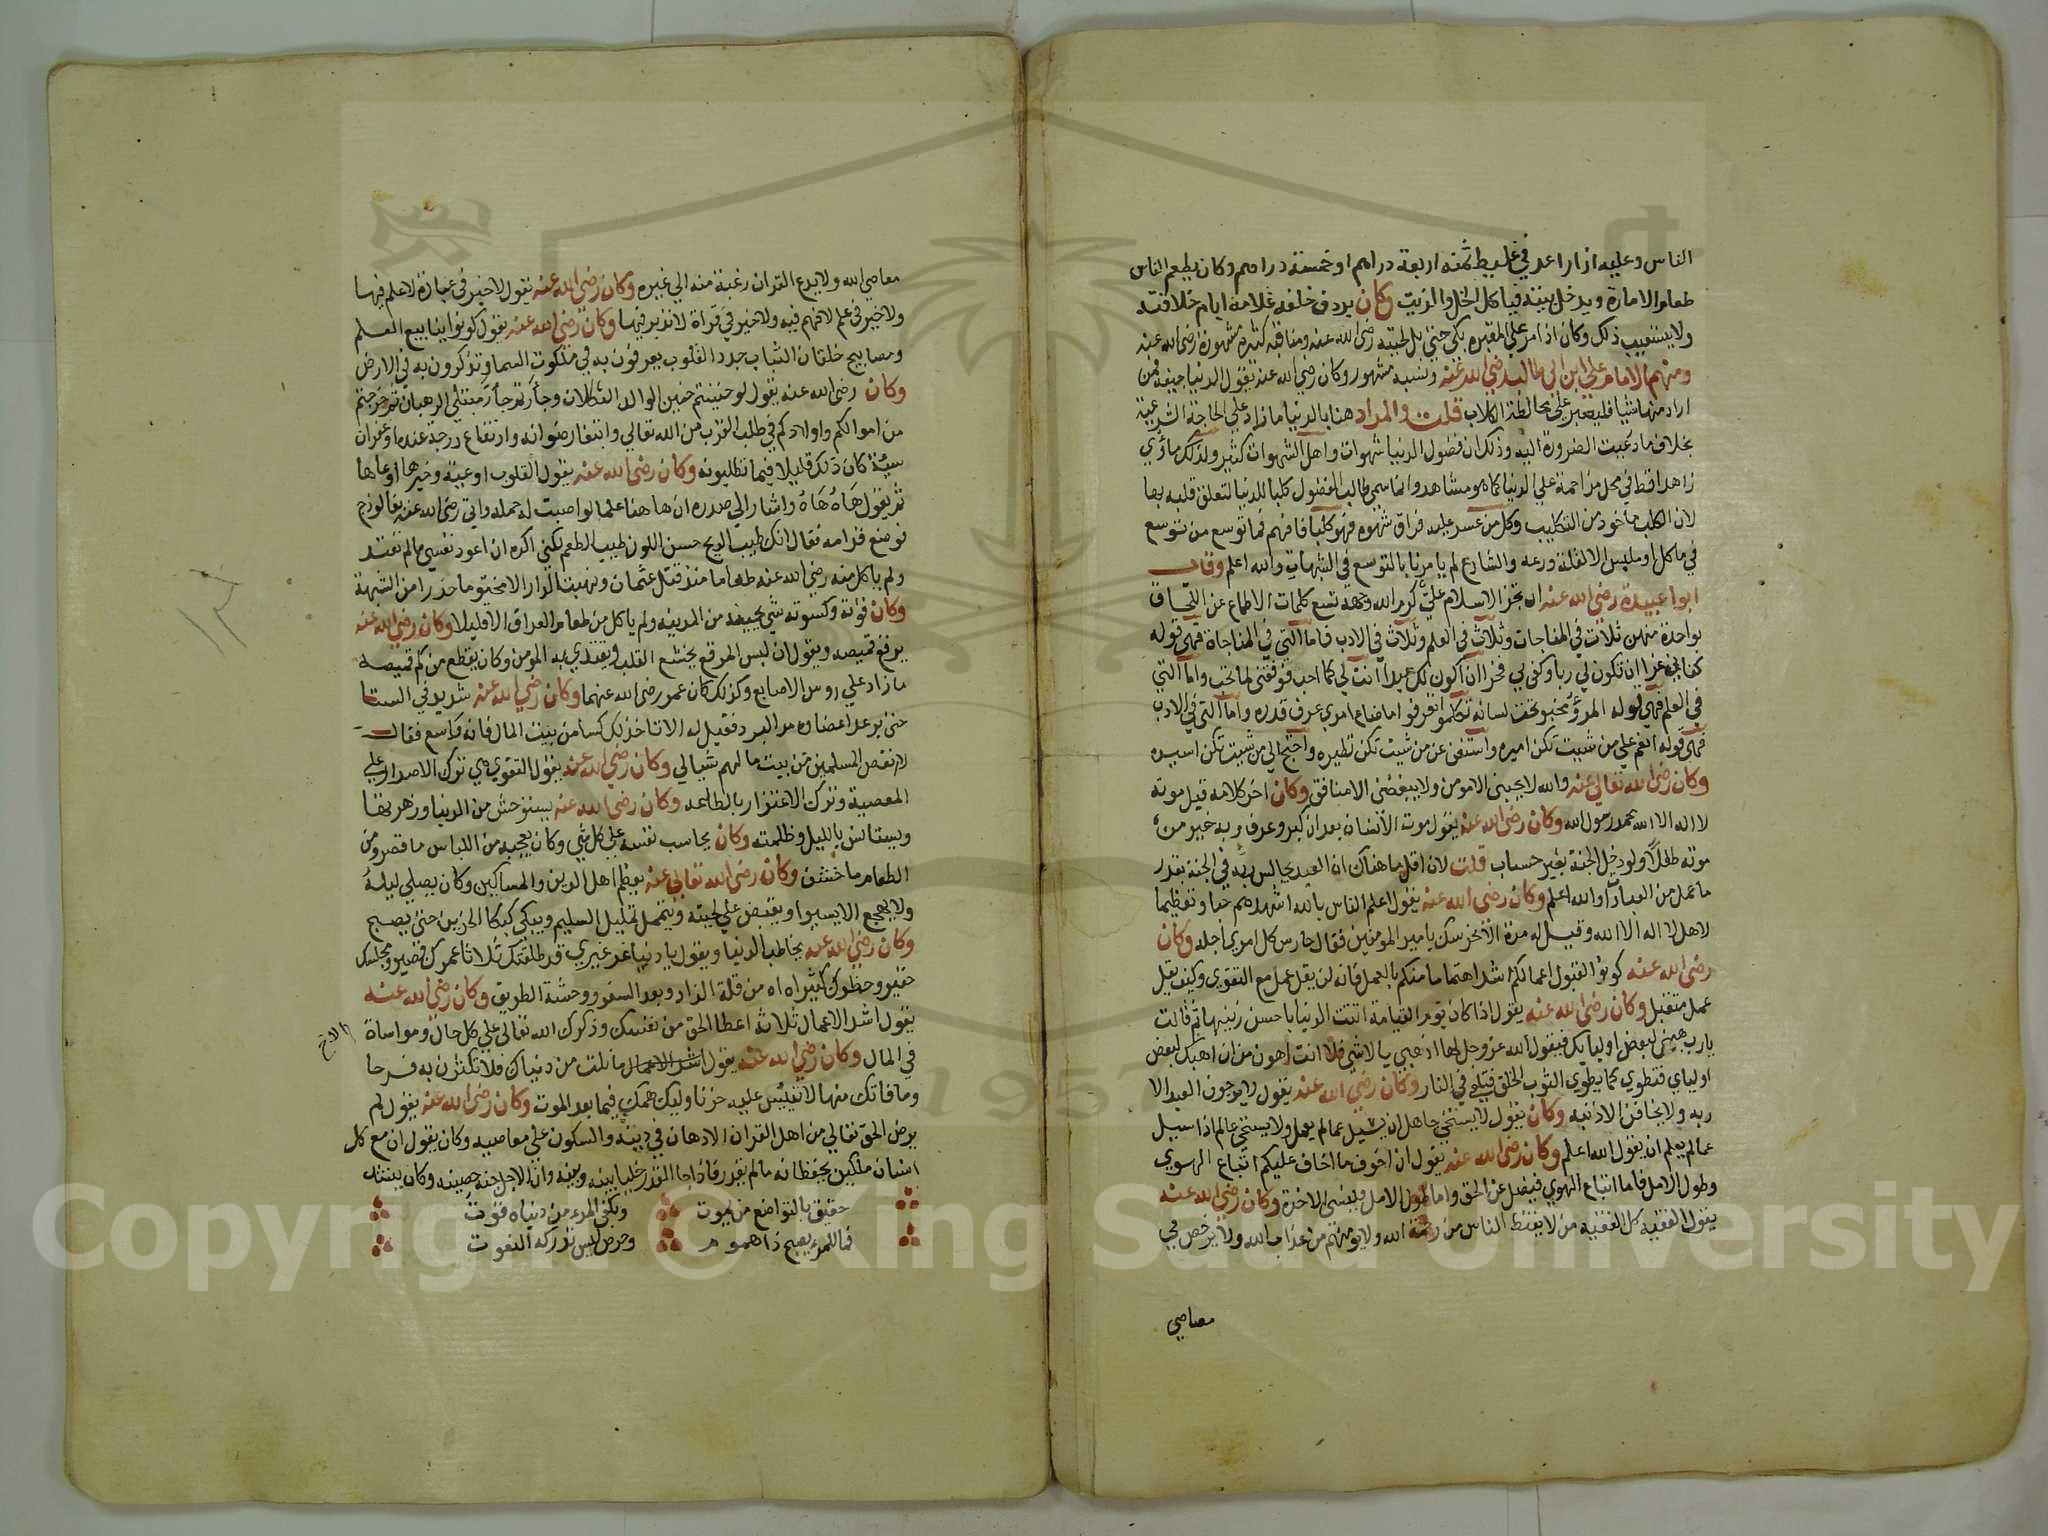 الناس وعليه ازار عدني غليظ ثمنه اربعة دراهم او خمسة دراهم وكان يطعم الناس
طعام الامارة ويدخل بيته فياكل الخل والزيت وكان يردف خلفه غلامه ايام خلافته
ولا يستعيب ذلك وكان اذا مر على المقبره بكى حتى بل لحيته رضي الله عنه ومناقبه كثيرة مشهورة رضي الله عنه
ومنهم الامام علي ابن ابي طالب رضي الله عنه ونسبه مشهور وكان رضي الله عنه يقول الدنيا جيفة فمن
اراد منها شيا فليصبر على مخالطة الكلاب قلت والمراد هنا بالدنيا ما زاد على الحاجة الشرعية
بخلاف ما دعت الضرورة اليه وذلك ان فضول الدنيا شهوات واهل الشهوات كثير ولذلك ما رؤي
زاهد اقط في محل مزاحمة على الدنيا كما هو مشاهد وانما سمي طالب الفضول كلبا للدنيا لتعلق قلبه بها
لان الكلب ماخوذ من التكليب وكل من عسر عليه فراق شهوه فهو كلبها فافهم فما توسع من توسع
في ماكل او ملبس الا لقلة ورعه والشارع لم يامرنا بالتوسع في الشبهات والله اعلم وقال
ابوا عبيدة رضي الله عنه ان بحر الاسلام علي كرم الله وجهه تسع كلمات الاطماع عن اللحاق
بواحدة منهن ثلاث في المناجات وثلاث في العلم وثلاث في الادب فاما التي في المناجاة فهي قوله
كفاني عزا ان تكون لي ربا وكفى بي فخرا ان اكون لك عبدا انت لي كما احب فوفقني لما تحب واما التي
في العلم فهي قوله المرؤ مخبو تحت لسانه تكلموا تعرفوا ما ضاع امرئ عرف قدره واما التي في الادب
فهي قوله انعم على من شيت تكن اميره واستغن عن من شيت تكن نظيره واحتج الى من شيت تكن اسيره
وكان رضي الله تعالى عنه والله لا يحبني الا مومن ولا يبغضني الا منافق وكان اخر كلامه قبل موته
لا اله الا الله محمد رسول الله وكان رضي الله عنه يقول موت الانسان بعد ان كبر وعرف ربه خير من
موته طفلا ولو دخل الجنة بغير حساب قلت لان اقل ما هناك ان العبد يجالس ربه في الجنة بقدر
ما عمل من العبادات والله اعلم وكان رضي الله عنه يقول اعلم الناس بالله اشدهم حبا وتعظيما
لاهل لا اله الا الله وقيل له مرة الا نحرسك يا امير المومنين فقال حارس كل امرئ اجله وكان
رضي الله عنه كونوا لقبول اعمالكم اشد اهتماما منكم بالعمل فانه لن يقل عمل مع التقوى وكيف يقل
عمل متقبل وكان رضي الله عنه يقول اذا كان يوم القيامة اتت الدنيا باحسن زينتها ثم قالت
يا رب هبني لبعض اوليايك فيقول الله عز وجل لها اذهبي يا لا شي فلا انت اهون من ان اهبك لبعض
اولياي فتطوى كما يطوى الثوب الخلق فتلقى في النار وكان رضي الله عنه يقول لا يرجون العبد الا
ربه ولا يخافن الا ذنبه وكان يقول لا يستحي جاهل ان يسيل عما لم يعلم ولا يستحي عالم اذا سيل
عما لم يعلم ان يقول الله اعلم وكان رضي الله عنه يقول ان اخوف ما اخاف عليكم اتباع الهوى
وطول الامل فاما اتباع الهوى فيضل عن الحق واما طول الامل فينسي الاخرة وكان رضي الله عنه
يقول الفقيه كل الفقيه من لا يقنط الناس من رحمة الله ولا يومنهم من عذاب الله ولا يرخص في
معاصي
معاصي الله ولا يدع القران رغبة منه الى غيره وكان رضي الله عنه يقول لا خير في عبادة لا علم فيها
ولا خير في علم لا فهم فيه ولا خير في قراة لا تدبر فيها وكان رضي الله عنه يقول كونوا ينابيع العلم
ومصابيح خلقان الثياب جدد القلوب يعرفون به في ملكوت السما وتذكرون به في الارض
وكان رضي الله عنه يقول لو حنيتم حنين الواله الثكلان وجأرتم جأر مبتلي الرهبان ثم خرجتم
من اموالكم واولادكم في طلب القرب من الله تعالى وابتغا رضوانه وارتفاع درجة عنده او غفران
سيئة كان ذلك قليلا فيما تطلبونه وكان رضي الله عنه يقول القلوب اوعية وخيرها اوعاها
ثم يقول هاه هاه واشار الى صدره ان هاهنا علما لو اصبت له حمله واتي رضي الله عنه بفالوذج
فوضع قدامه فقال انك طيب الريح حسن اللون طيب الطعم لكني اكره ان اعود نفسي ما لم تعتد
ولم ياكل منه رضي الله عنه طعاما منذ قتل عثمان ونهبت الدار الا مختوما حذرا من الشبهة
وكان قوته وكسوته شي يجيه من المدينه ولم ياكل من طعام العراق الا قليلا وكان رضي الله عنه
يرقع قميصه ويقول ان لبس المرقع يخشع القلب ويقتدي به المومن وكان يقطع من كم قميصه
ما زاد على روس الاصابع وكذلك كان عمر رضي الله عنهما وكان رضي الله عنه شديد في الشتا
حتى يرعد اعضاوه من البرد فقيل له الا تاخذ لك كسا من بيت المال فانه واسع فقال
لا انقص المسلمين من بيت مالهم شيالي وكان رضي الله عنه يقول التقوى هي ترك الاصرار على
المعصية وترك الاغترار بالطاعه وكان رضي الله عنه يستوحش من الدنيا وزهرتها
ويستانس بالليل وظلمته وكان يحاسب نفسه على كل شي وكان يعجبه من اللباس ما قصر ومن
الطعام ما خشن وكان رضي الله تعالى عنه يعظم اهل الدين والمساكين وكان يصلي ليله
ولا يهجع الا يسيرا ويقبض على لحيته ويتململ تململ السليم ويبكي كبكا الحزين حتى يصبح
وكان رضي الله عنه يخاطب الدنيا ويقول يا دنيا غر غيري قد طلقتك ثلاثا عمرك قصير ومجلسك
حقير وخطرك كثير اه اه من قلة الزاد وبعد السفر ووحشة الطريق وكان رضي الله عنه
يقول اشد الاعمال ثلاثة اعطا الحق من نفسك وذكرك الله تعالى على كل حال ومواساة
الاخ
في المال وكان رضي الله عنه يقول اشد الاعمال ما نلت من دنياك فلا تكثرن به فرحا
وما فاتك منها لا تيئس عليه حزنا وليك همك فيما بعد الموت وكان رضي الله عنه يقول لم
يرض الحق تعالى من اهل القران الادهان في دينه والسكون على معاصيه وكان يقول ان مع كل
انسان ملكين يحفظانه ما لم يقدر فاذا جا القدر خليا بينه وبينه وان الاجل جنه حصينه وكان ينشد
حقيق بالتواضع من يموت ويكفي المرء من دنياه قوت
فما للمرء يصبح ذا هموم وحرص ليس تدركه النعوت
١٢
Copyright © King Saud University
1957